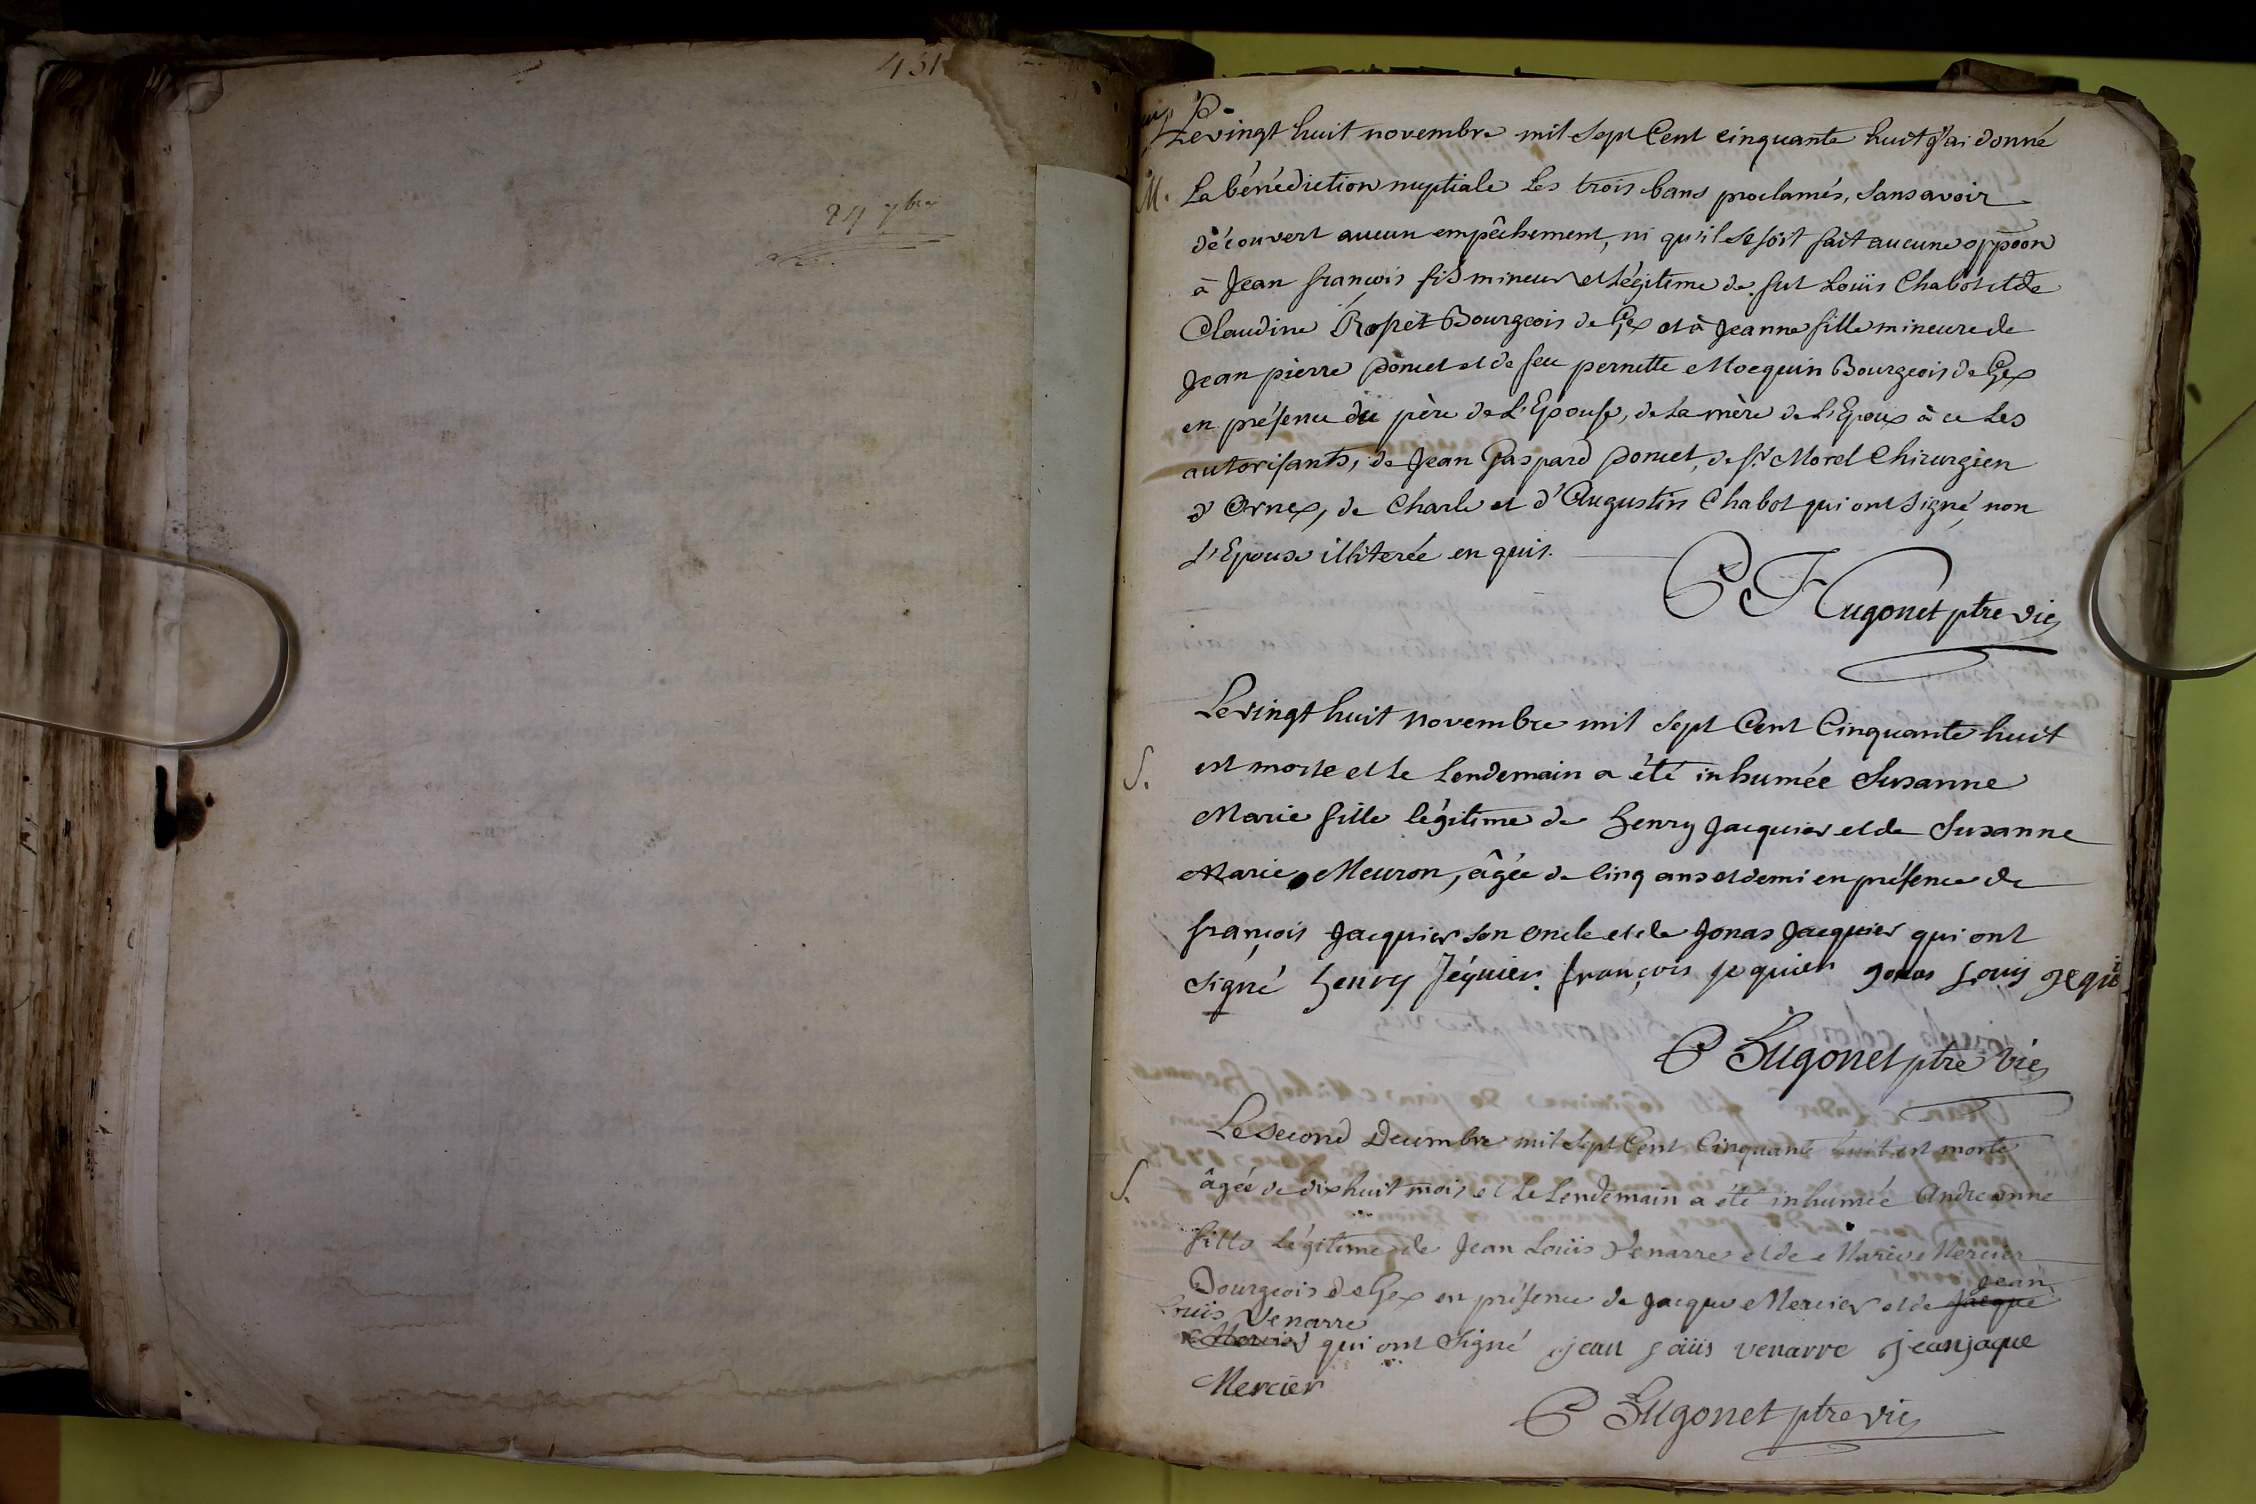 431
24 7bre
Le vingt huit novembre mil sept Cent cinquante huit j'ai donné
M. La bénédiction nuptiale Les trois bans proclamés, sans avoir
découvert aucun empêchement, ni qu'il se soit fait aucune oppoon
à Jean françois fils mineur et légitime de fut Loüis Chabot et de
Claudine Bourgeois de Gex et à Jeanne fille mineure de
Jean pierre Poncet et de feu pernette Mocquin Bourgeois de Gex
en présence du père de L'Epouse, de La mère de L'Epoux à ce Les
autorisants, de Jean Gaspard Poncet, de Sr Morel Chirurgien
d'Ornex, de Charle et d'Augustin Chabot qui ont signé, non
L'Epouse illiterée en quis.
P Hugonet ptre vic
Le vingt huit novembre mil sept Cent Cinquante huit
S. est morte et le Lendemain a été inhumée Susanne
Marie fille légitime de henry Jacquier et de Susanne
Marie Meuron, âgée de Cinq ans et demi en présence de
françois Jacquier son oncle et de Jonas Jacquier qui ont
signé henry Jéquier. françois je quier jonas Louis
P Hugonet ptre vic
Le second Decembre mil sept Cent Cinquante huit est morte
S. âgée de dix huit mois et Le Lendemain a été inhumée Andreanne
fille Légitime de Jean Loüis Venarre et de Marie Mercier
Jean
Bourgeois de Gex en présence de Jacque Mercier et de Jacque
Louis Venarre
Mercier qui ont signé jean Loüis venarre jean jaque
Mercier
P Hugonet ptre vic